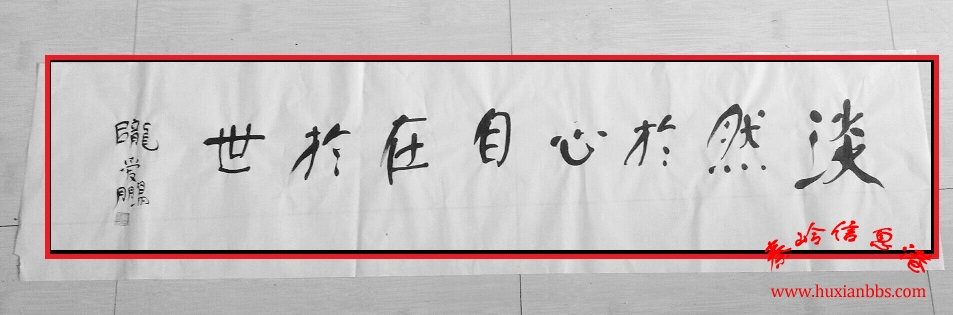 淡然於心自在於世
秦岭信息港
www.huxianbbs.com